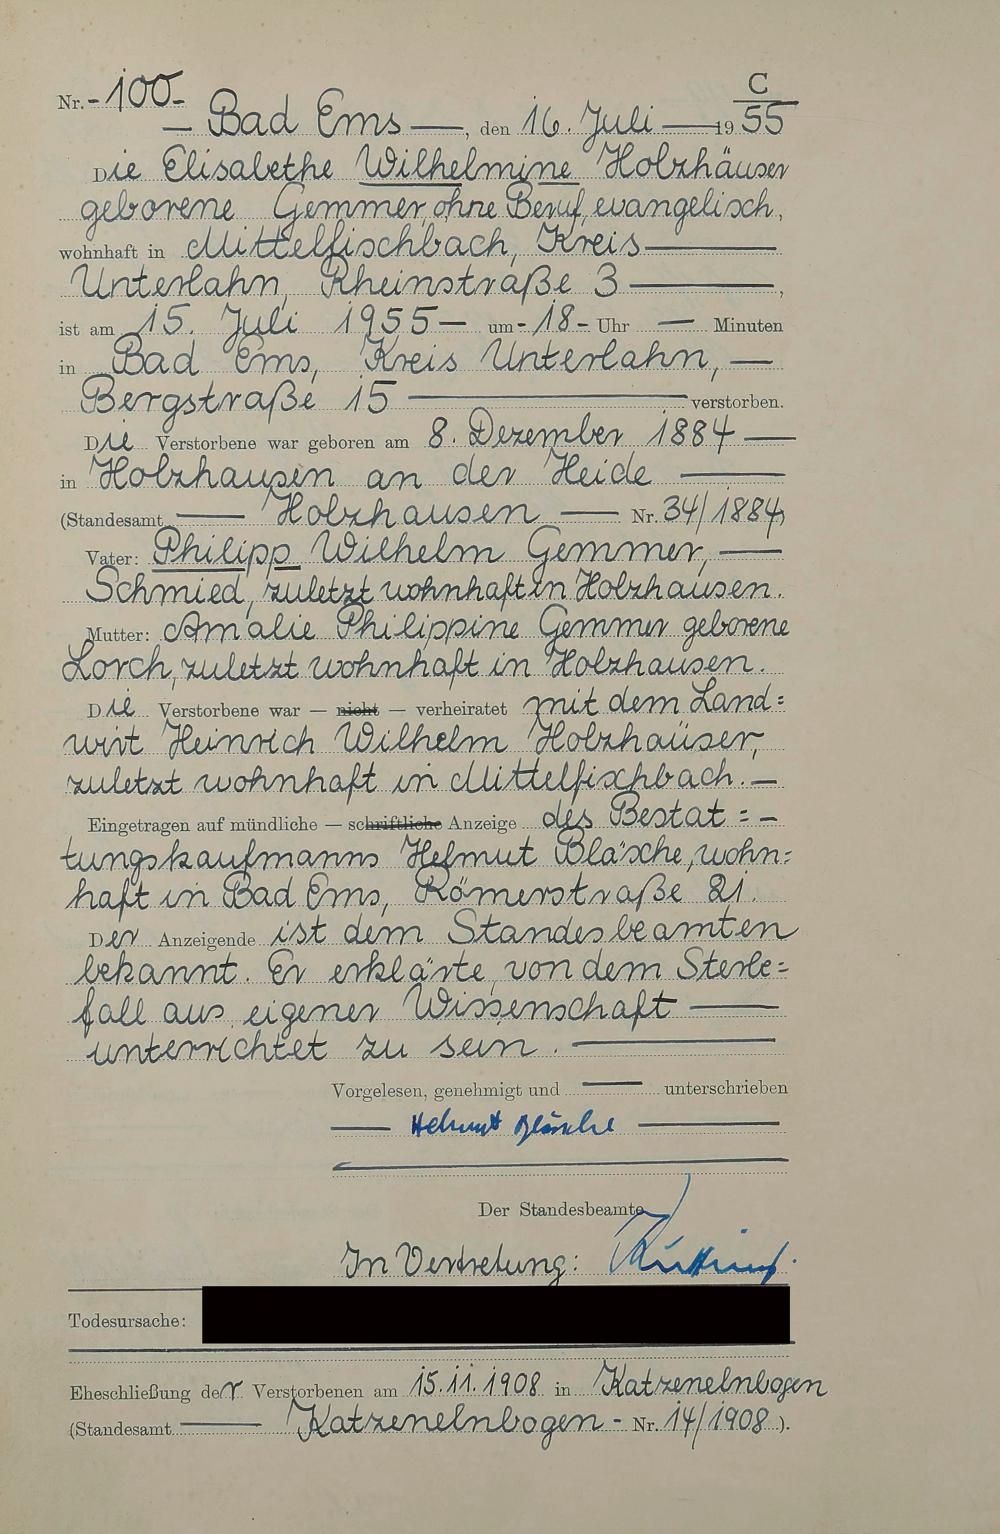 C
Nr. - 100 -
— Bad Ems —, den 16. Juli — 19 55
Die Elisabethe Wilhelmine Holzhäuser
geborene Gemmer, ohne Beruf, evangelisch,
wohnhaft in Mittelfischbach, Kreis —
Unterlahn, Rheinstraße 3 —,
ist am 15. Juli 1955 — um - 18 - Uhr — Minuten
in Bad Ems, Kreis Unterlahn, —
Bergstraße 15 — verstorben.
Die Verstorbene war geboren am 8. Dezember 1884 —
in Holzhausen an der Heide —
(Standesamt — Holzhausen — Nr. 34/1884)
Vater: Philipp Wilhelm Gemmer, —
Schmied, zuletzt wohnhaft in Holzhausen.
Mutter: Amalie Philippine Gemmer geborene
Lorch, zuletzt wohnhaft in Holzhausen.
Die Verstorbene war — nicht — verheiratet mit dem Land=
wirt Heinrich Wilhelm Holzhäuser,
zuletzt wohnhaft in Mittelfischbach. —
Eingetragen auf mündliche — schriftliche Anzeige des Bestat = -
tungskaufmanns Helmut Bläsche, wohn=
haft in Bad Ems, Römerstraße 21.
Der Anzeigende ist dem Standesbeamten
bekannt. Er erklärte, von dem Sterbe=
fall aus eigener Wissenschaft —
unterrichtet zu sein. —
Vorgelesen, genehmigt und — unterschrieben
— Helmut Bläsche —
Der Standesbeamte
In Vertretung:
Todesursache:
Eheschließung der Verstorbenen am 15.11.1908 in Katzenelnbogen
(Standesamt — Katzenelnbogen - Nr. 14/1908).